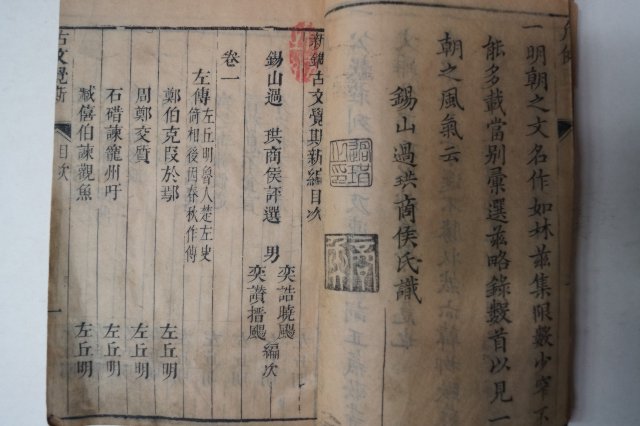 一明朝之文名作如林茲集限數少罕不
能多載當別彙選茲略錄數首以見一
朝之風氣云
錫山過珙商侯氏識
新鐫古文覺斯新編目次
錫山過 珙商侯評選 男 奕誥曉颺 奕讚搢颺 編次
卷一
左傳 左丘明魯人楚左史倚相後因春秋作傳
鄭伯克段於鄢 左丘明
周鄭交質 左丘明
石碏諫寵州吁 左丘明
臧僖伯諫觀魚 左丘明
古文覺斯 目次 一